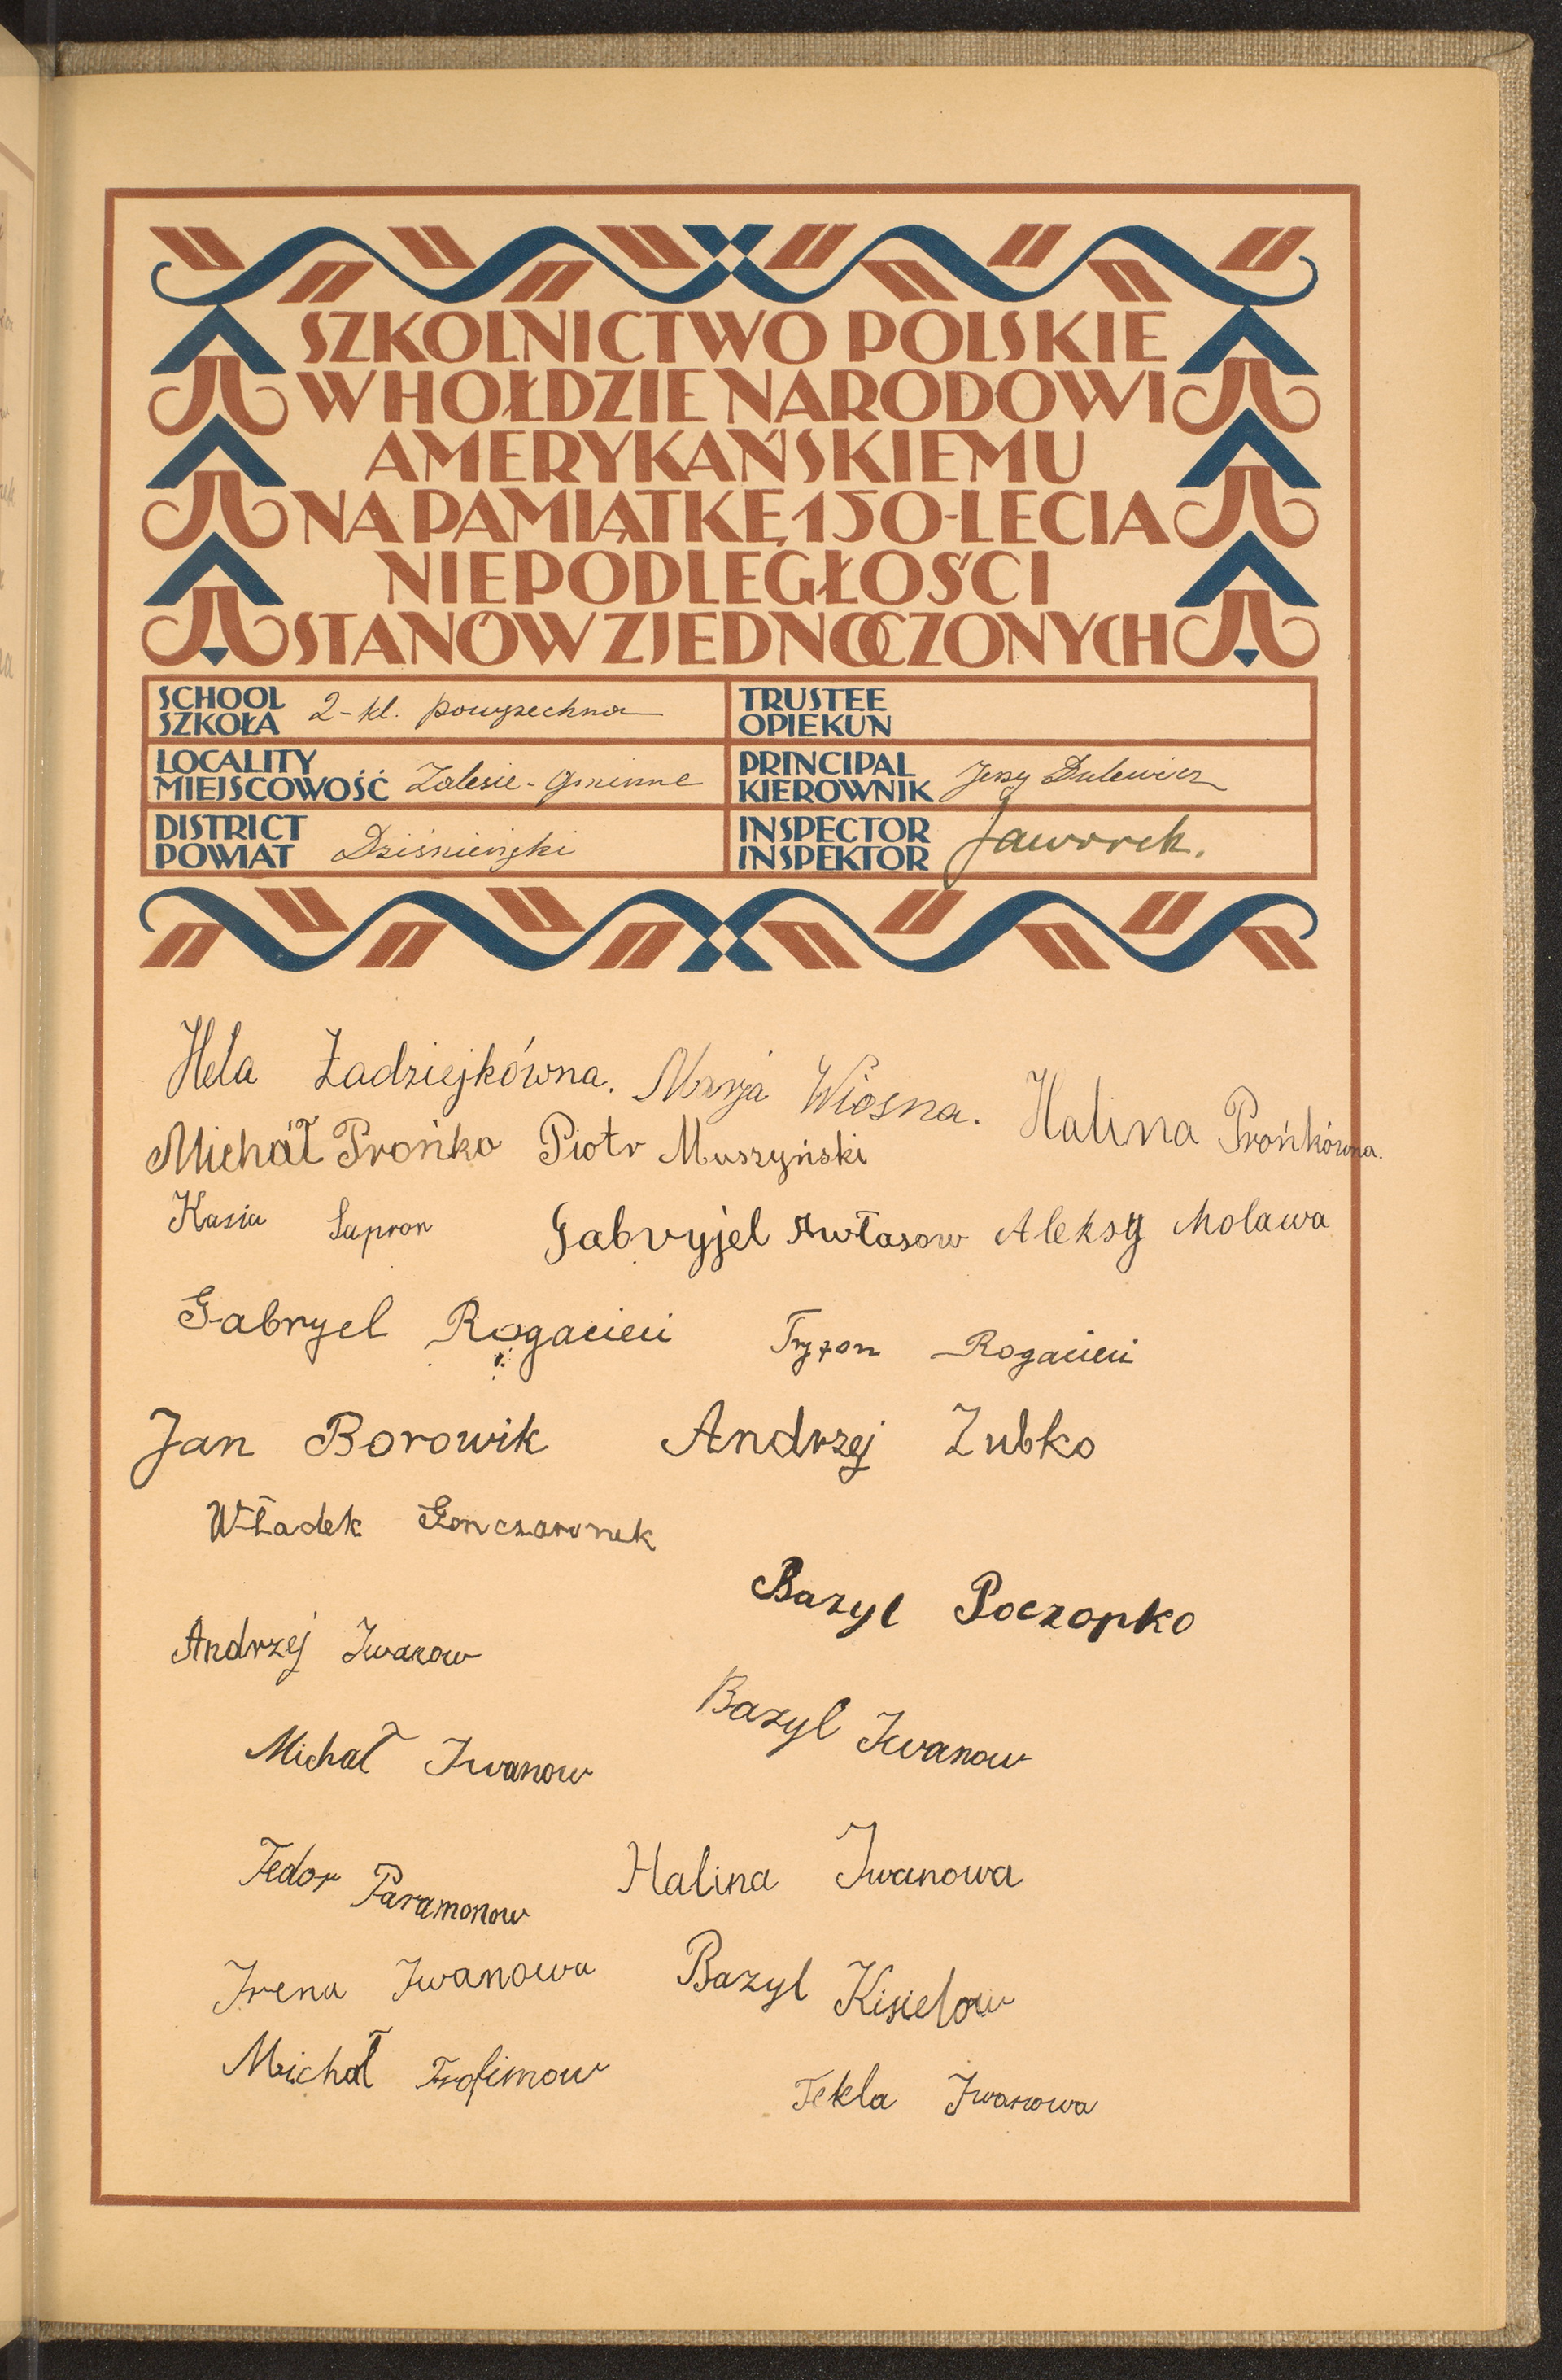 SZKOLNICTWO POLSKIE
W HOŁDZIE NARODOWI
AMERYKAŃSKIEMU
NA PAMIĄTKĘ 150-LECIA
NIEPODLEGŁOŚCI
STANÓW ZJEDNOCZONYCH
SCHOOL
SZKOŁA 2-kl. powszechna
TRUSTEE
OPIEKUN
LOCALITY
MIEJSCOWOŚĆ Zalesie-Gminne
PRINCIPAL
KIEROWNIK Jerzy Dulewicz
DISTRICT
POWIAT Dziśnieński
INSPECTOR
INSPEKTOR Jaworek.
Hela Ładziejkówna. Marja Wiosna. Halina Prońkówna.
Michał Prońko Piotr Muszyński
Kasia Sapron Gabryjel Awłasow Aleksy Molawa
Gabryel Rogacieci Rogacieci
Jan Borowik Andrzej Zubko
Władek Gonczaronek
Bazyl Poczopko
Andrzej Iwanow
Bazyl Iwanow
Michał Iwanow
Fedor Paramonow Halina Iwanowa
Irena Iwanowa Bazyl Kisielow
Michał Trofimow
Tekla Iwanowa